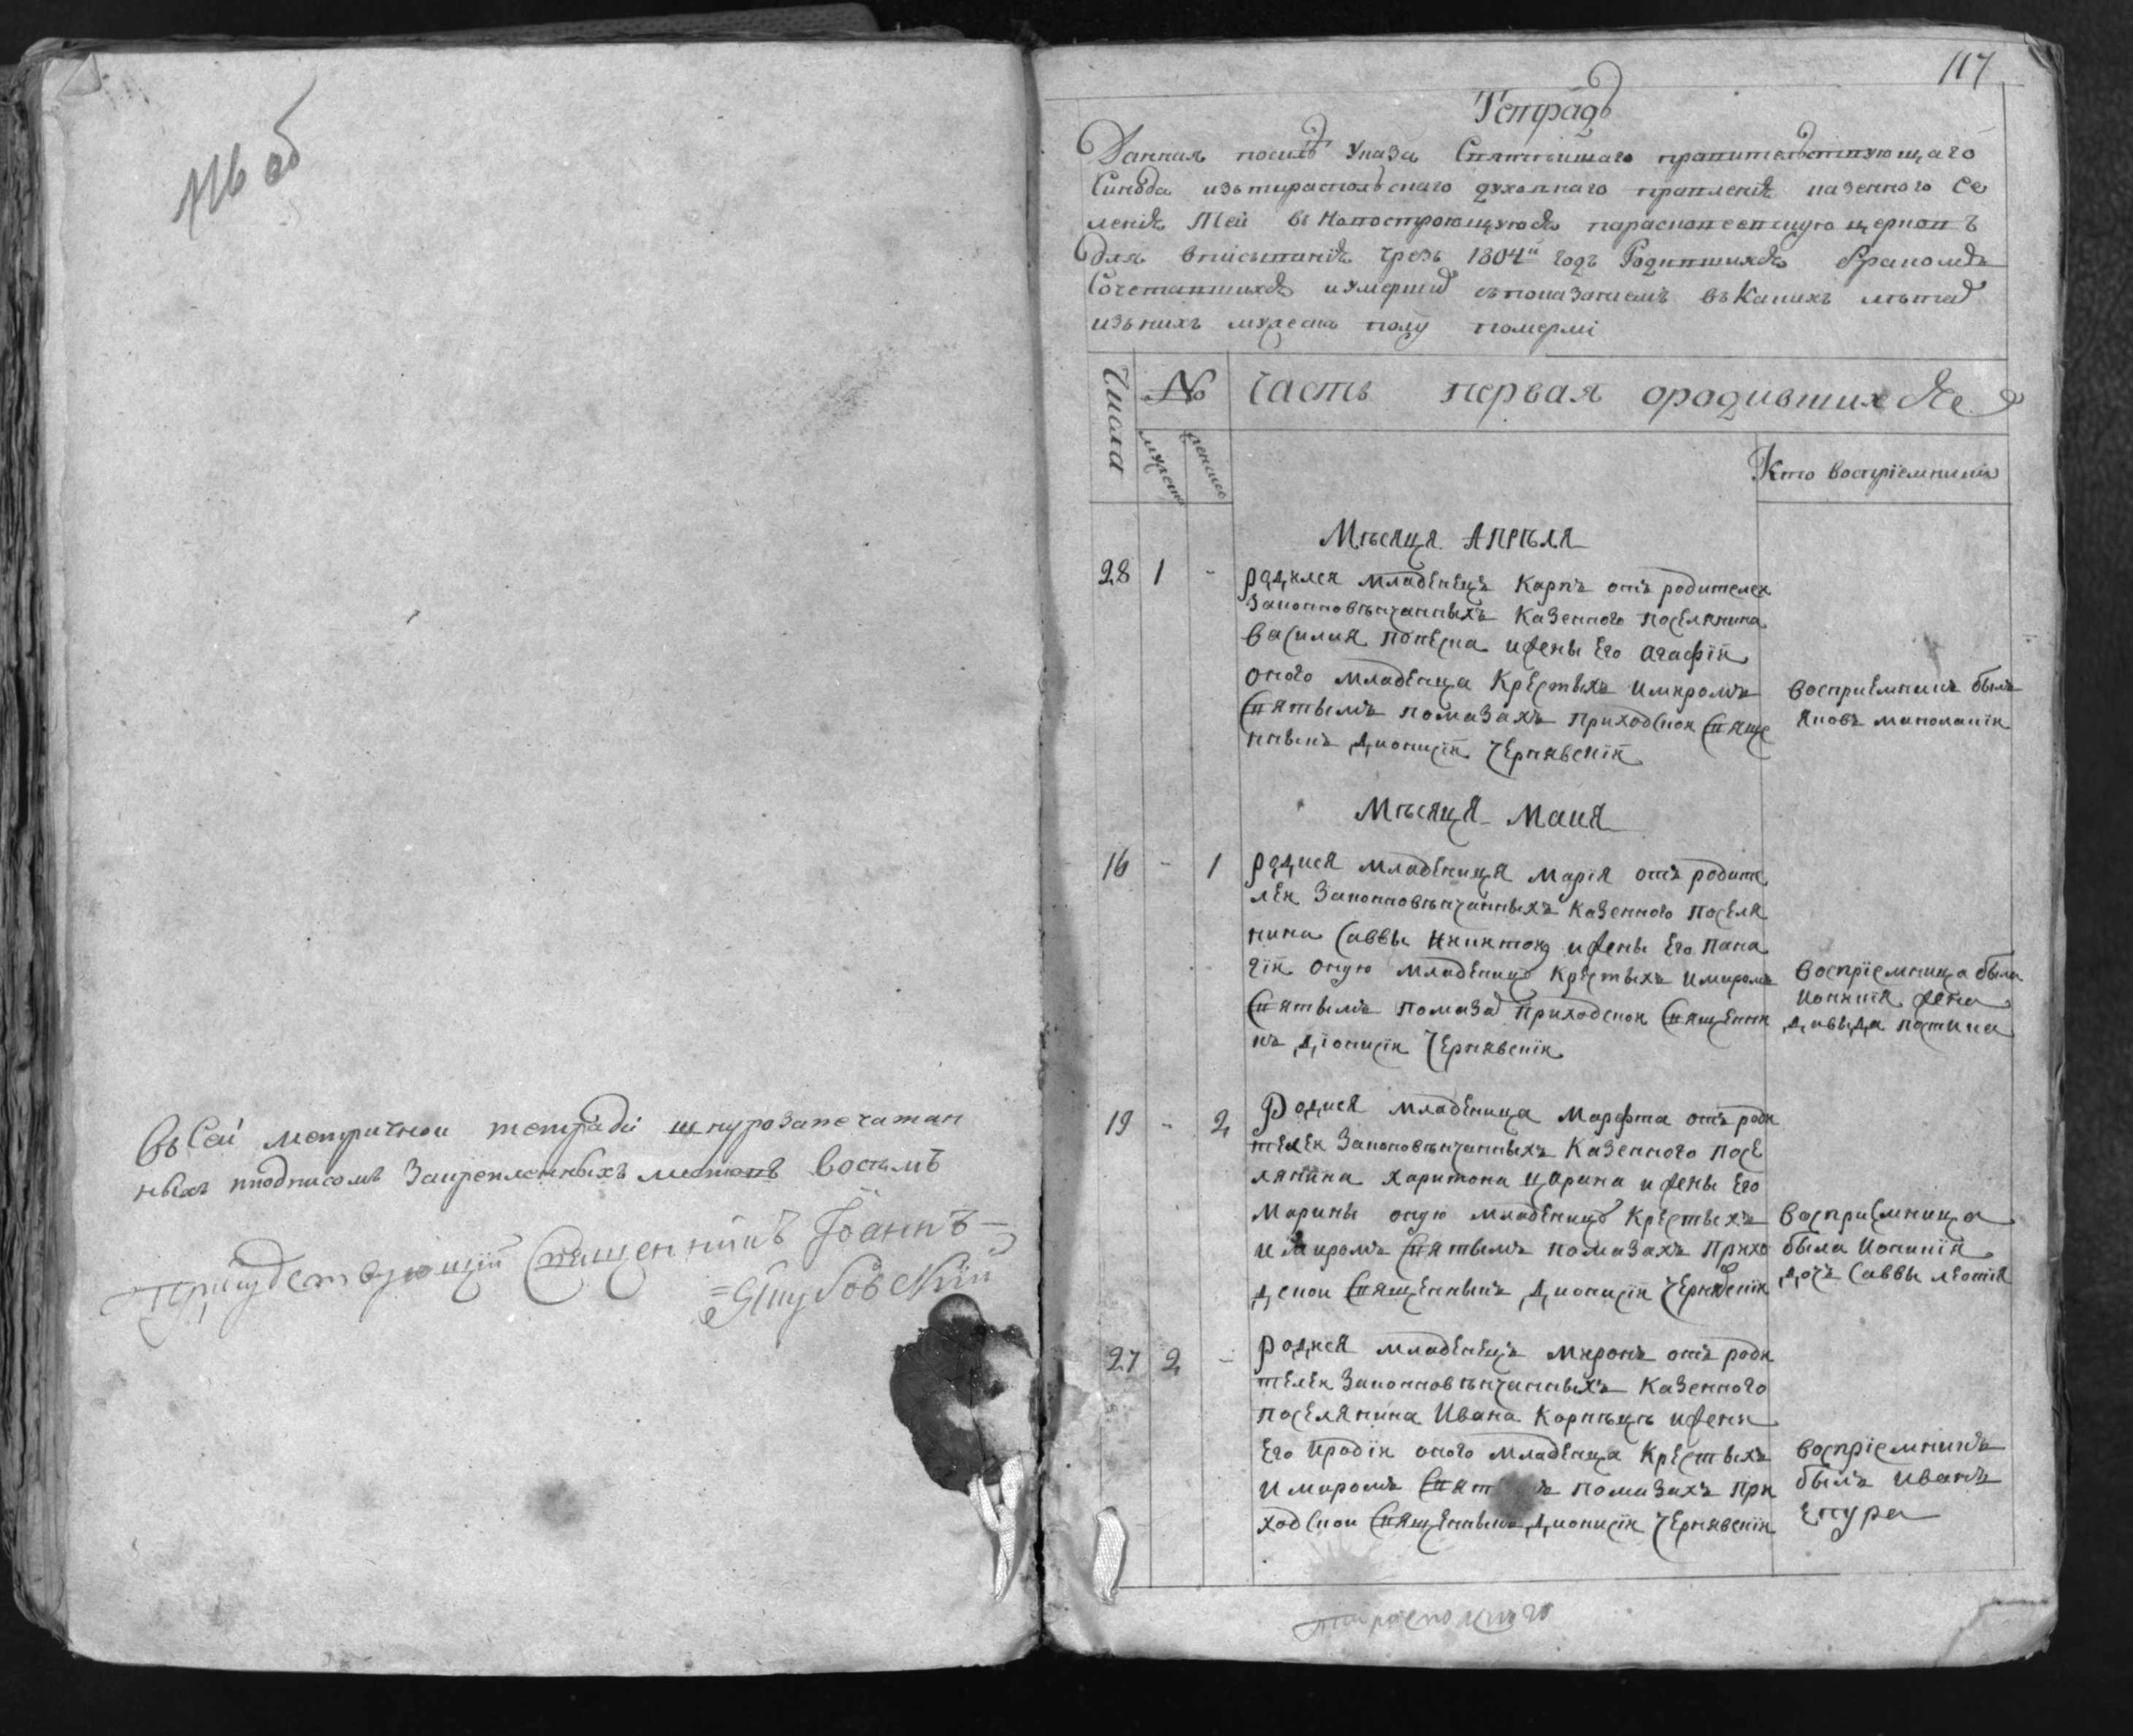 116 об
Въ сей метричной тетради шнурозапечатан
ныхъ подписомъ Закрепленныхъ листовъ восемъ
Присудствующій Священникъ Іоаннъ
Якубовскій
117
Тетрадь
Данная посилѣ Указа Святѣйшаго правительствующаго
Синода изътираспольскаго духовнаго правленія казенного Се
ленія Теи въ Новостроющуюся параскопеевскую церковъ
Для вписыванія чрезъ 1804й годъ Родившихся бракомъ
Сочетавшихся иумершихъ съпоказаниемъ въ Какихъ лѣтахъ
изънихъ мужеска полу померли
Числа
№
Часть первая ородившихся
мужеска
женска
Кто восприемники
Мѣсяца Апрѣля
28 1 -
родился младенецъ Карпъ отъ родителей
Законновѣнчанныхъ Казенного поселянина
Василия ижены Его Агафіи
оного младенца Крестилъ имиромъ
Святымъ помазалъ приходской Свяще
нникъ Дионисій Чернявскій
восприемникъ былъ
Яковъ
Мѣсяца Маия
16 - 1
родися младеница Марія отъ родите
лей Законновѣнчанныхъ Казенного поселя
нина Саввы ижены Его Пана
гіи оную младеницу Крестилъ имиромъ
Святымъ помазалъ приходской Священни
къ Діонисій Чернявскій
восприемница была
жена
Давыда
19 - 2
Родися младеница Марфта отъ роди
телей Законовѣнчанныхъ Казенного посе
лянина Харитона Царана ижены Его
Марины оную младеницу Крестилъ
имиромъ Святымъ помазалъ прихо
дской Священникъ Дионисій Чернявскій
восприемница
была
дочъ Саввы
27 2 -
родися младенецъ Миронъ отъ роди
телей Законновѣнчанныхъ Казенного
поселянина Ивана ижени
Его Иродіи оного младенца Крестилъ
имиромъ помазалъ при
ходской Священникъ Дионисій Чернявскій
восприемникъ
былъ Иванъ
Епура